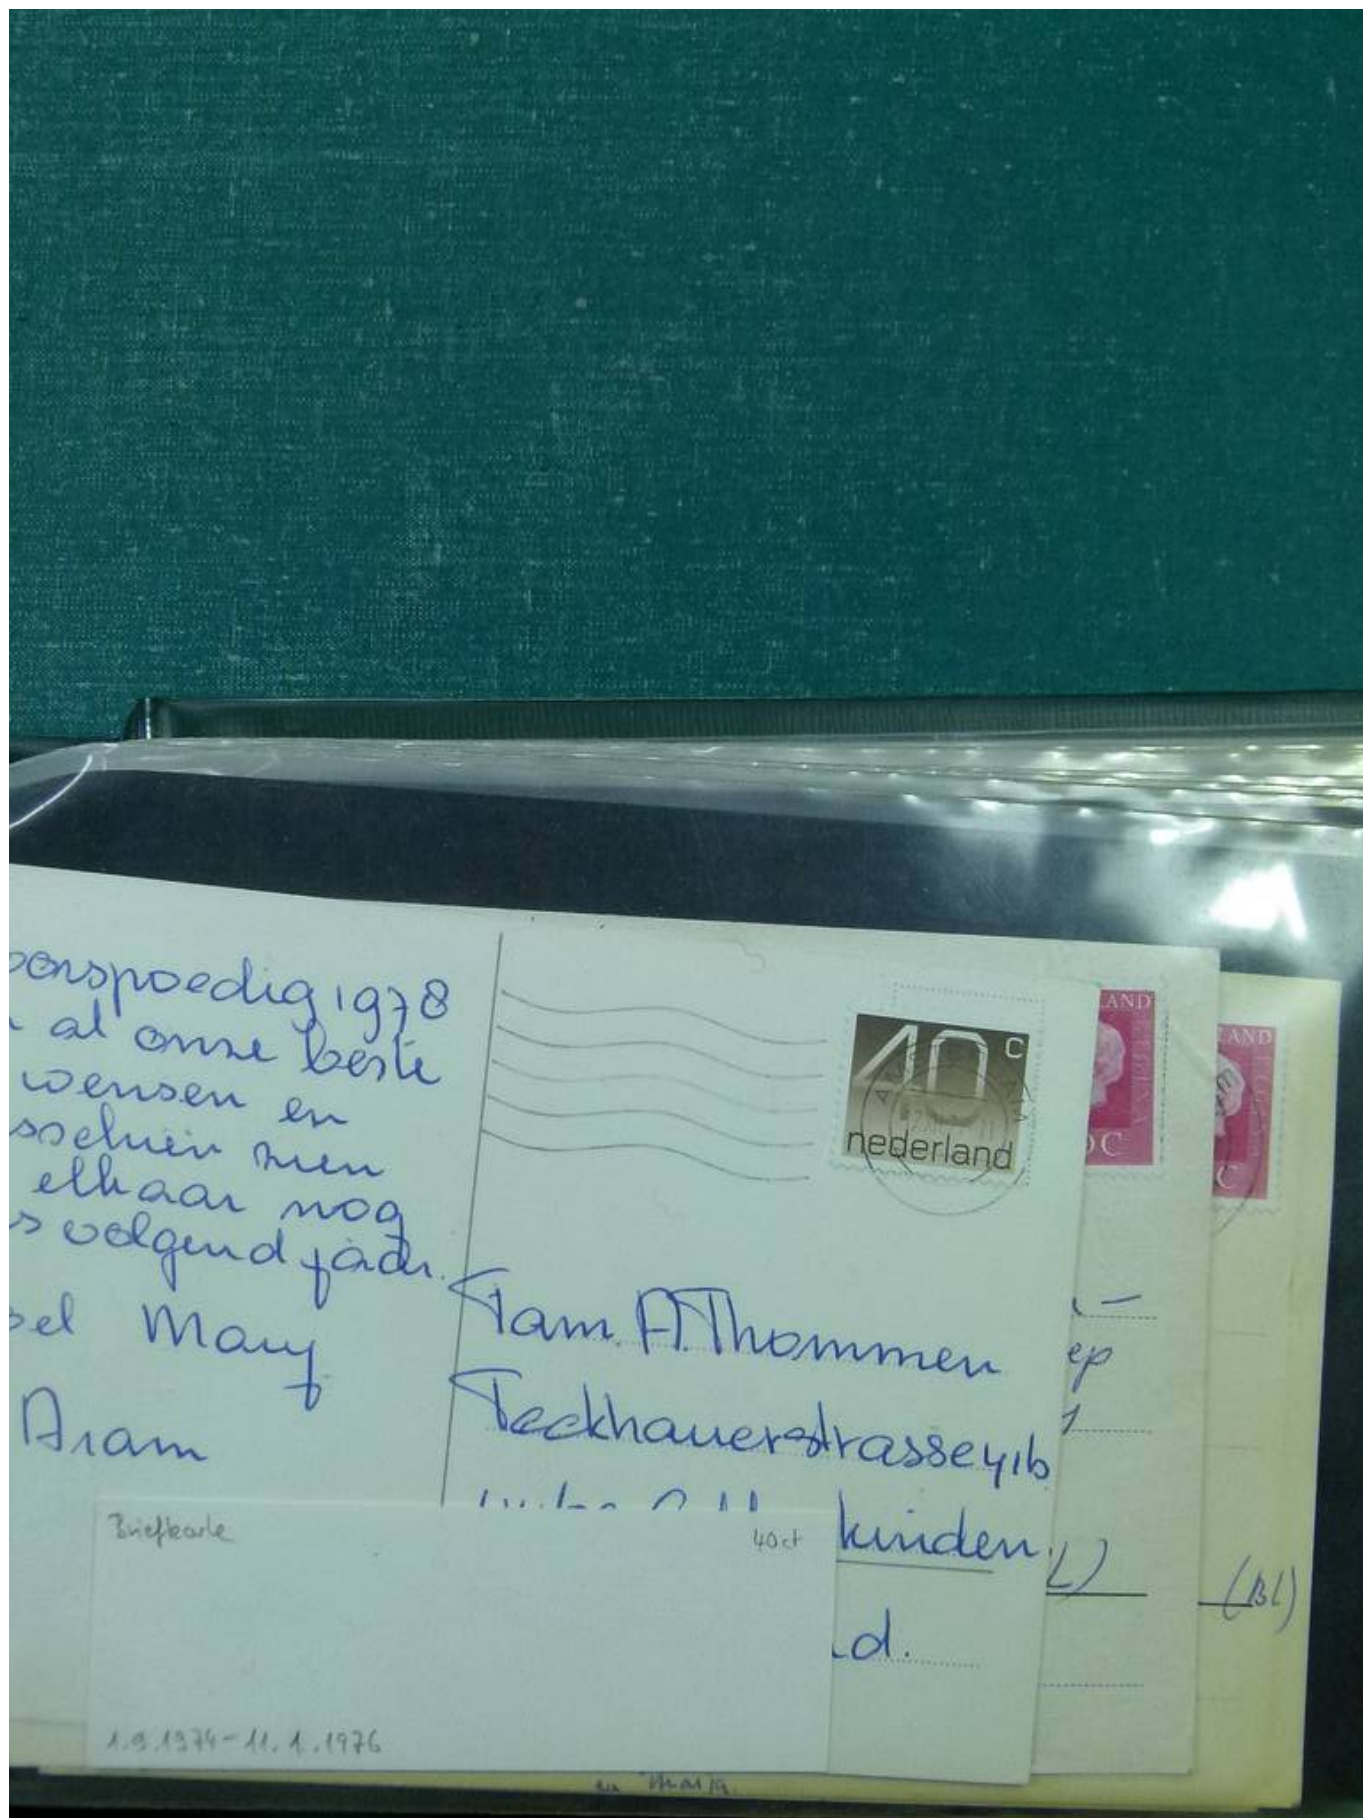 oorspoedig 1978
al onze beste
wensen en
sschien zien
elkaar nog
s volgend jaar.
Mary
Aram
40 C
nederland
Fam. A. Thommen
Teckhauerstrasse 41b
kinden.
d.
LAND
0C
LAND
C
ep
L)
(BL)
Briefkarte
40 ct
1.9.1974-11.1.1976